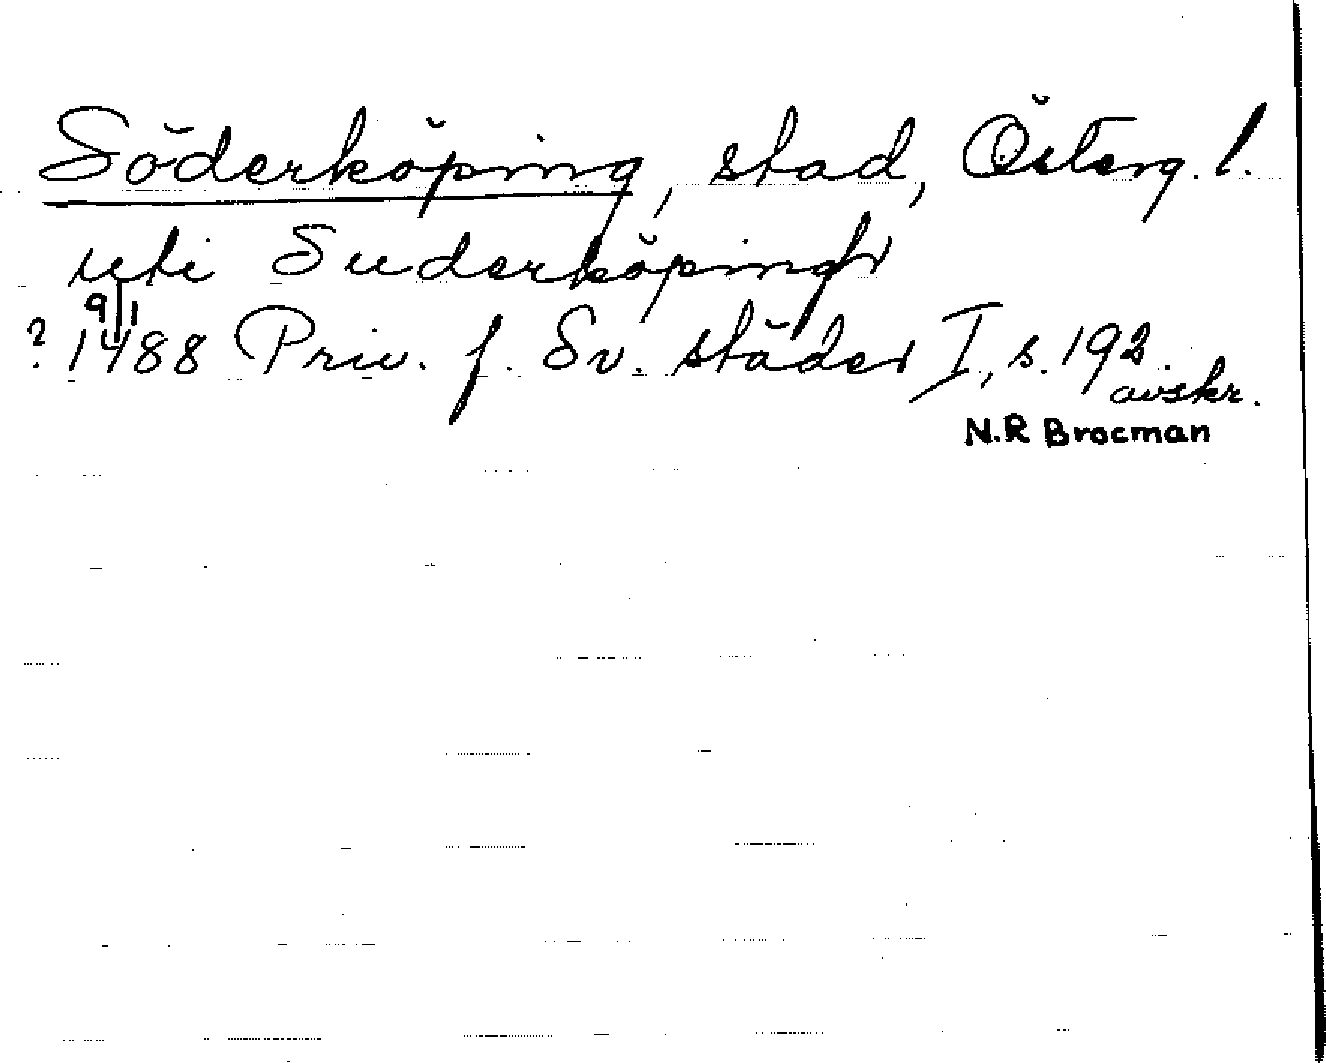 Söderköping, stad, Österg. l.
uti Suderköpingh
9/1
? 1488 Priv. f. Sv. städer I, s. 192.
avskr.
N.R Brocman